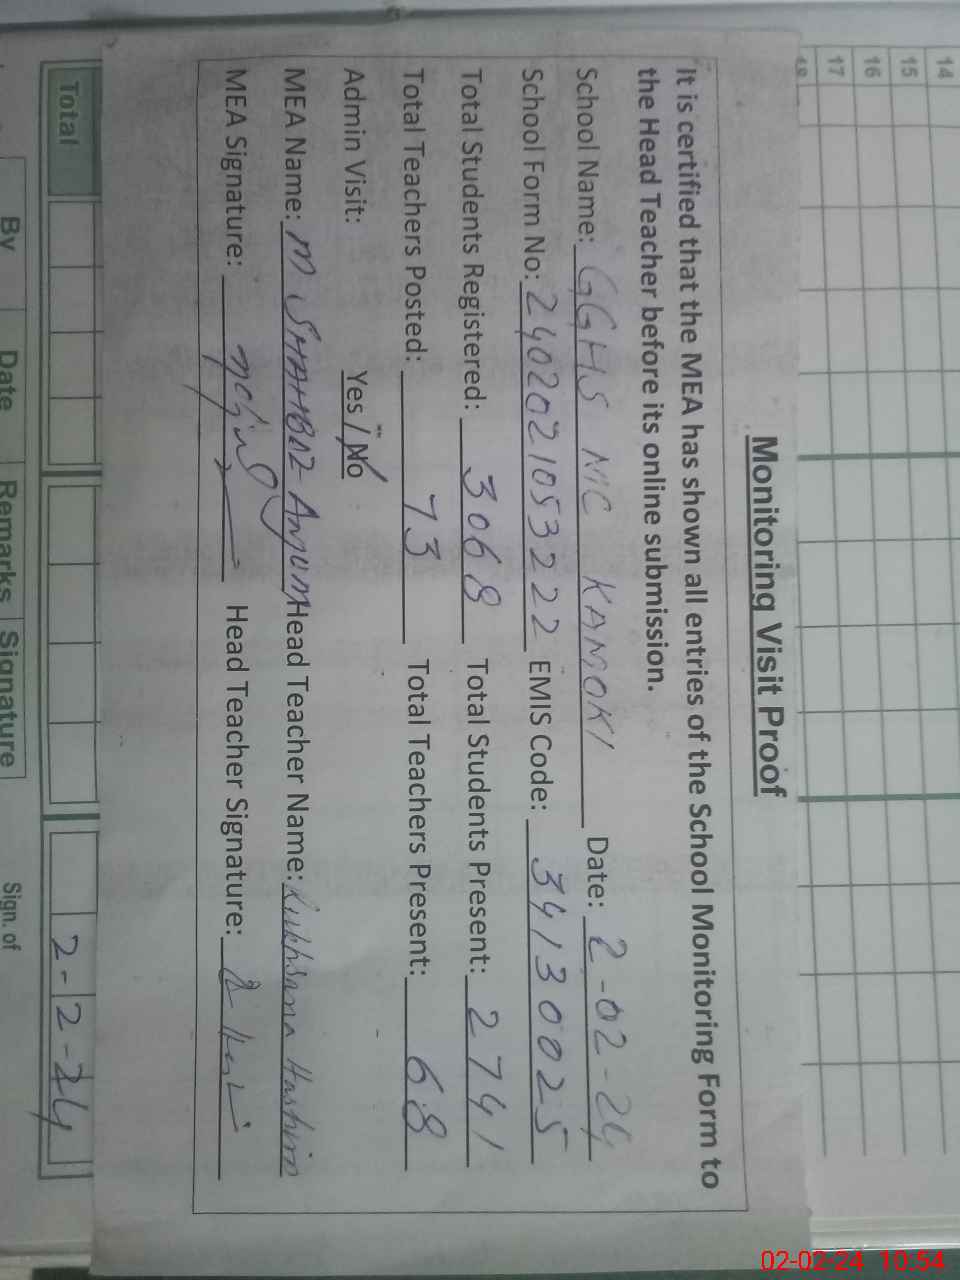 14
15
16
17
18
Monitoring Visit Proof
It is certified that the MEA has shown all entries of the School Monitoring Form to
the Head Teacher before its online submission.
School Name: GGHS MC KAMOKI Date: 2-02-24
School Form No: 2402021053222 EMIS Code: 34130025
Total Students Registered: 3068 Total Students Present: 2741
Total Teachers Posted: 73 Total Teachers Present: 68
Admin Visit: Yes / No
MEA Name: M SHAHBAZ Anjum Head Teacher Name: Rukhsana Hashim
MEA Signature: Head Teacher Signature:
Total 2-2-24
By Date Remarks Signature Sign. of
02-02-24 10:54